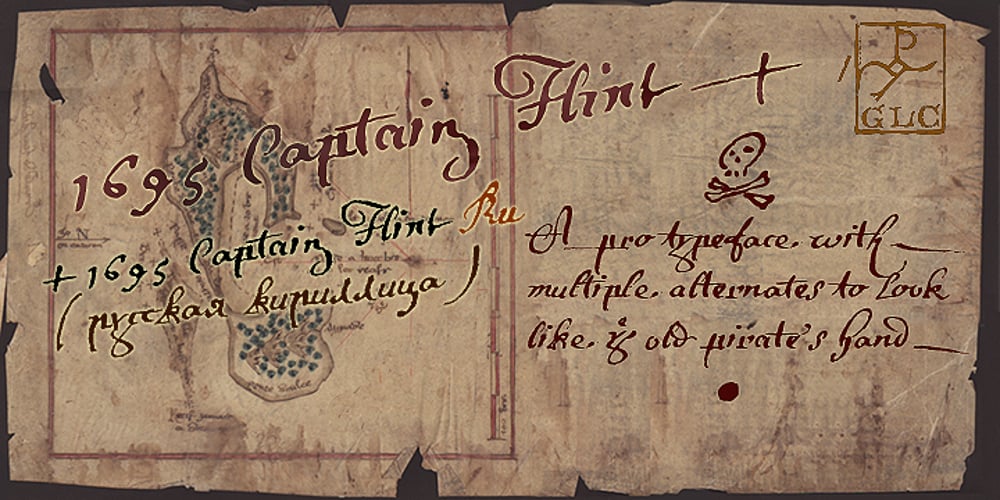 1695 Captain Flint +
+ 1695 Captain Flint Ru
(русская кириллица)
P
GLC
A pro typeface. with
multiple. alternates to look
like. ye old pirate's hand
N